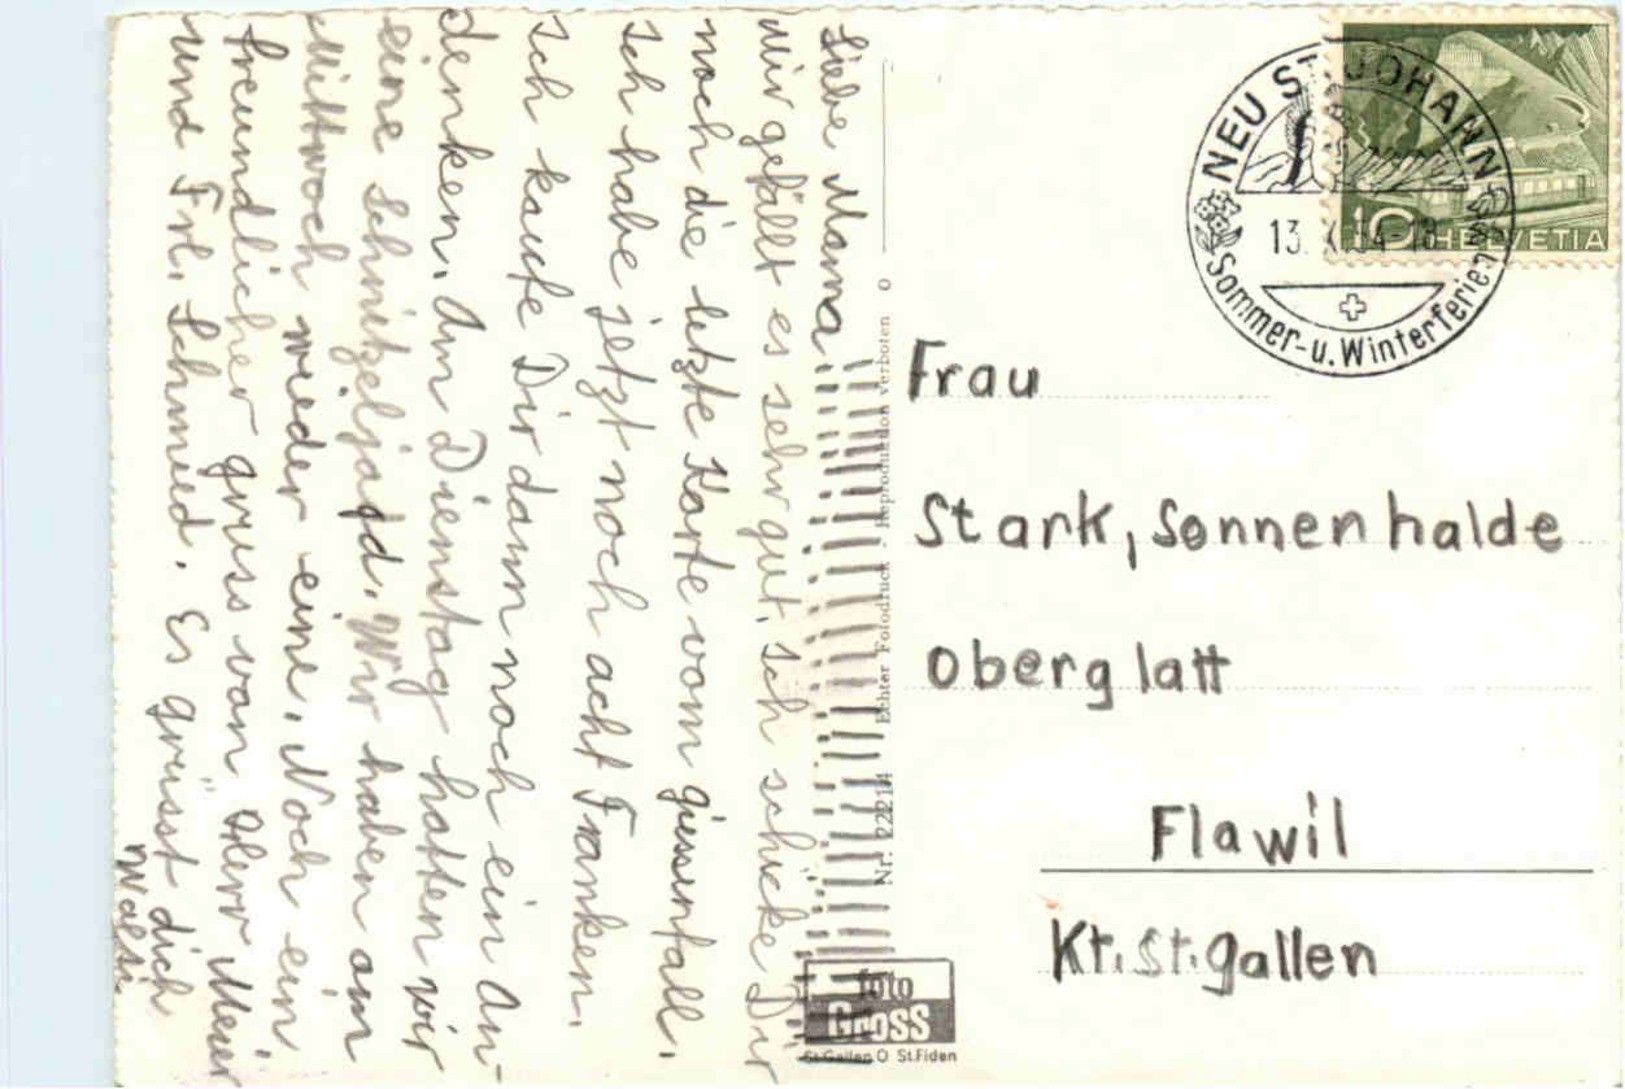 Liebe Mama!
Mir gefällt es sehr gut. Ich schicke Dir
noch die letzte Karte vom giessenfall.
Ich habe jetzt noch acht Franken.
Ich kaufe Dir dann noch ein An-
denken. Am Dienstag hatten wir
eine Schnitzeljagd. Wir haben am
Mittwoch wieder eine. Noch ein
freundlicher gruss von Herr Meier
und Frl. Schmied. Es grüsst dich
Nr. 22214 Echter Fotodruck - Reproduktion verboten O
foto
Gross
St.Gallen O St.Fiden
NEU ST. JOHANN
13. XI.54-18
Sommer-u.Winterferien
10 HELVETIA
Frau
Stark, Sonnenhalde
Oberglatt
Flawil
Kt. St. gallen